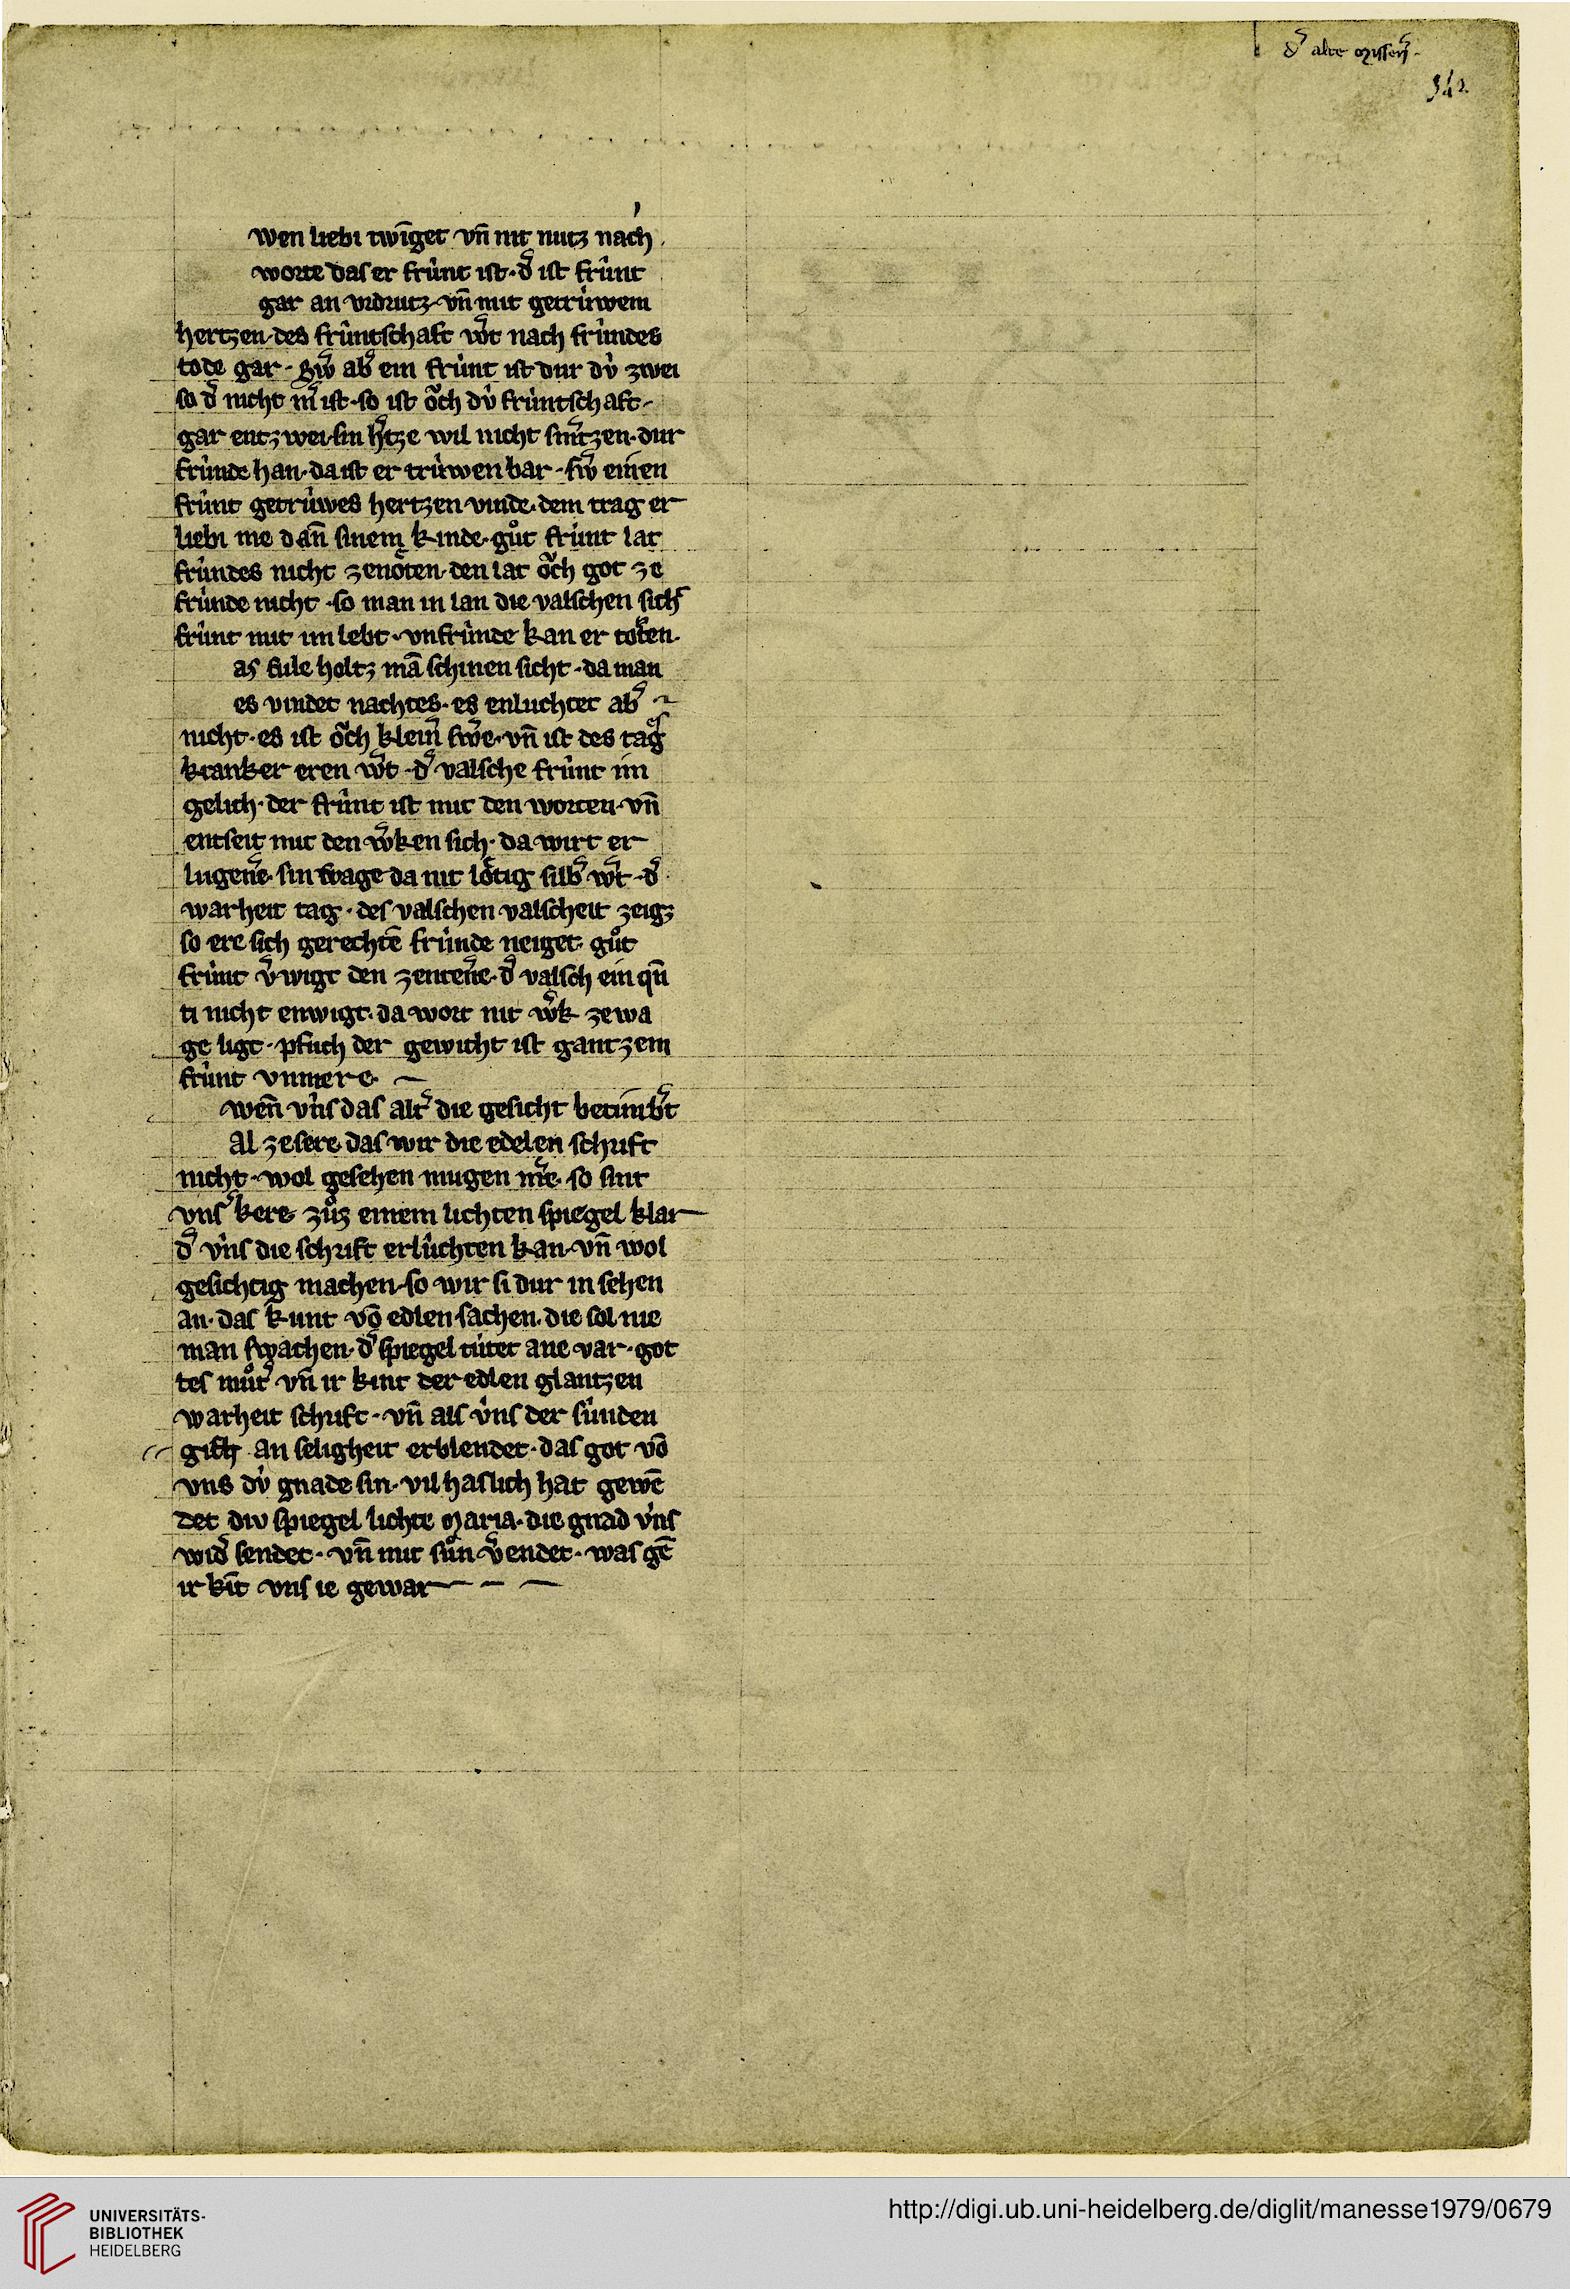 dˀ alte Missenˀ.
342
wen liebi twīget vn̄ nit nutz nach
worte das er frúnt ist · dˀ ist frúnt
gar an vrdrutz · vn̄ mit getrúwem
hertzen · des frúntschaft wˀt nach frúndes
tode gar · Swˀ abˀ ein frúnt ist dur dú zwei
so dˀ nicht mˀ ist · so ist oͮch dú frúntschaft
gar entzwei · sin hˀtze wil nicht smˀtzen · dur
frúnde han · da ist er trúwen bar · swˀ einen
frúnt getrúwes hertzen vinde · dem trag er
liebi me dan̄ sinem kinde · guͦt frúnt lat
frúndes nicht zenoͤten · den lat oͮch got ze
frúnde nicht · so man in lan die valschen sichˀ
frúnt mit im lebt · vnfrúnde kan er
as fule holtz mā schinen sicht · da man
es vindet nachtes · es enluchtet abˀ
nicht · es ist oͮch kleinˀ swˀe · vn̄ ist des tages
kranker eren wˀt · dˀ valsche frúnt im
gelich · der frúnt ist mit den worten · vn̄
entseit mit den wˀken sich · da wirt er
lugenˀe · sin wage da nit loͤtig silbˀ wˀt · dˀ
warheit tag · des valschen valscheit zeigz
so ere sich gerechtē frúnde neiget · guͦt
frúnt vˀwigt den zentenˀe · dˀ valsch ein qn̄
ti nicht enwigt · da wort nit wˀk zewa
ge ligt · pfuch der gewicht ist gantzem
frúnt vnmere ·
wen̄ vńs das altˀ die gesicht betimbˀt
al ze sere das wir die edelen schrift
nicht · wol gesehen mugen mˀe · so sint
vnsˀ kere zuͦz einem lichten spiegel klar
dˀ vńs die schrift erlúchten kan · vn̄ wol
gesichtig machen · so wir si dur in sehen
an · das kunt vō edlen sachen · die sol nie
man swachen · dˀ spiegel tútet ane var · got
tes muͦtˀ vn̄ ir kint der edlen glantzen
warheit schrift · vn̄ als v́ns der súnden
gift an seligheit erblendet · das got vō
vns dú gnade sin · vil haslich hat gewē
det diu spiegel lichte Maria · die gnad vńs
widˀ sendet · vn̄ mit suͦn vˀendet · was gē
ir kīt vns ie gewar
UNIVERSITÄTS-
BIBLIOTHEK
HEIDELBERG
http://digi.ub.uni-heidelberg.de/diglit/manesse1979/0679